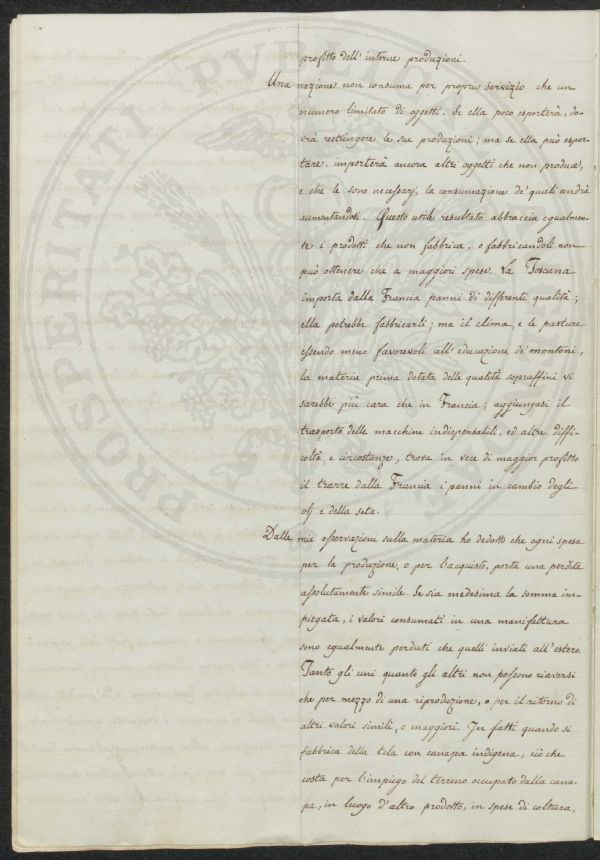 profitto dell' interne produzioni.
Una nazione non consuma per proprio servizio che un
numero limitato di oggetti. Se ella poco esporterà, do-
vrà restringere le sue produzioni; ma se ella può espor-
tare, importerà ancora altri oggetti che non produce,
e che le sono necessarj, la consumazione de' quali andrà
aumentandosi. Questo utile resultato abbraccia egualmen-
te i prodotti che non fabbrica, o fabbricandoli non
può ottenere che a maggiori spese. La Toscana
importa dalla Francia panni di differenti qualità;
ella potrebbe fabbricarli; ma il clima, e le pasture
essendo meno favorevoli all' educazione de' montoni,
la materia prima dotata delle qualità sopraffini vi
sarebbe più cara che in Francia; aggiungasi il
trasporto delle macchine indispensabili, ed altre diffi-
coltà, e circostanze, trova in vece di maggior profitto
il trarre dalla Francia i panni in cambio degli
olj e della seta.
Dalle mie osservazioni sulla materia ho dedotto che ogni spesa
per la produzione, o per l'acquisto, porta una perdita
assolutamente simile. Se sia medesima la somma im-
piegata, i valori consumati in una manifattura
sono egualmente perduti che quelli inviati all' estero.
Tanto gli uni quanto gli altri non possono riaversi
che per mezzo di una riproduzione, o per il ritorno di
altri valori simili, o maggiori. In fatti quando si
fabbrica della tela con canapa indigena, ciò che
costa per l'impiego del terreno occupato dalla cana-
pa, in luogo d'altro prodotto, in spese di coltura,
PROSPERITATI PVBLIC